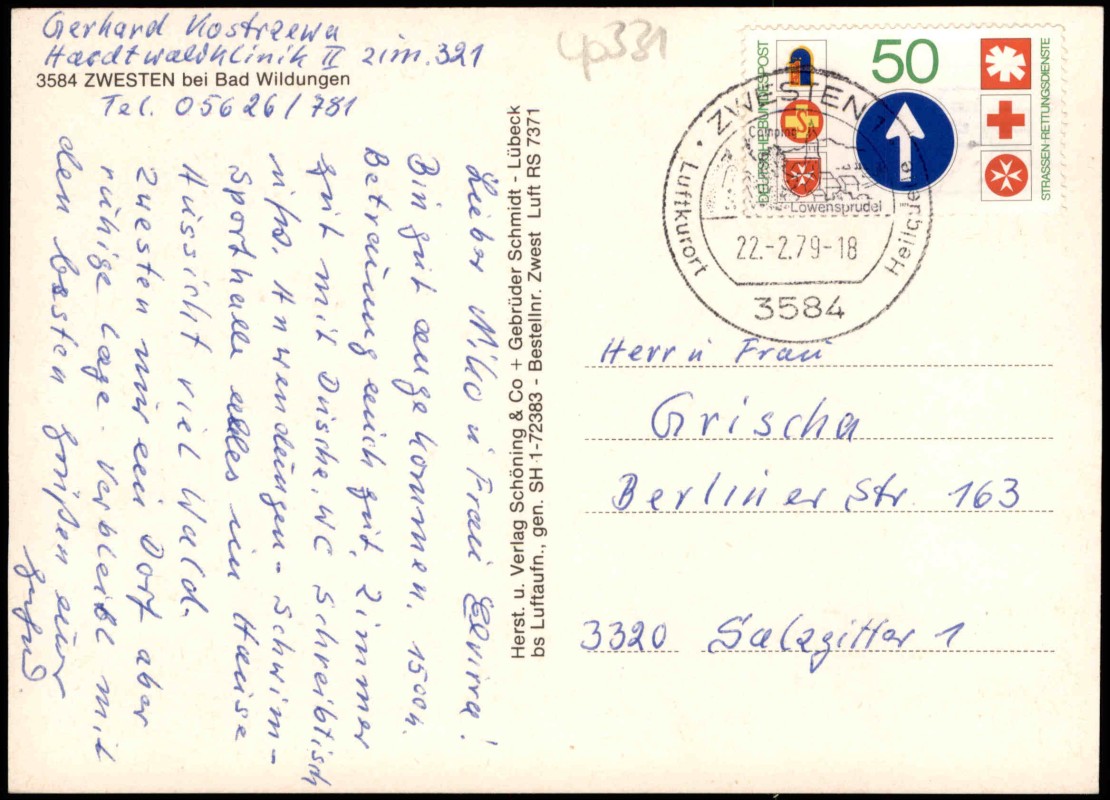 Gerhard Kostrzewa
Hardtwaldklinik II zim. 321
3584 ZWESTEN bei Bad Wildungen
Tel. 05626/781
Lieber Milko u Frau Elvira!
Bin gut angekommen. 1500h.
Betreuung auch gut, Zimmer
gut mit Dusche, WC Schreibtisch
usw. Anwendungen - Schwim-
Sporthalle alles im Hause
Aussicht viel Wald.
Zwesten nur ein Dorf aber
ruhige Lage. Verbleibe mit
den besten Grüßen euer
Herst. u. Verlag Schöning & Co + Gebrüder Schmidt - Lübeck
bs Luftaufn., gen. SH-1-72383 - Bestellnr. Zwest Luft RS 7371
4p331
DEUTSCHE BUNDESPOST
50
STRASSEN-RETTUNGSDIENSTE
ZWESTEN 1
Luftkurort
Heilquelle
Camping
Löwensprudel
22.-2.79-18
3584
Herr u Frau
Grischa
Berliner Str. 163
3320 Salzgitter 1